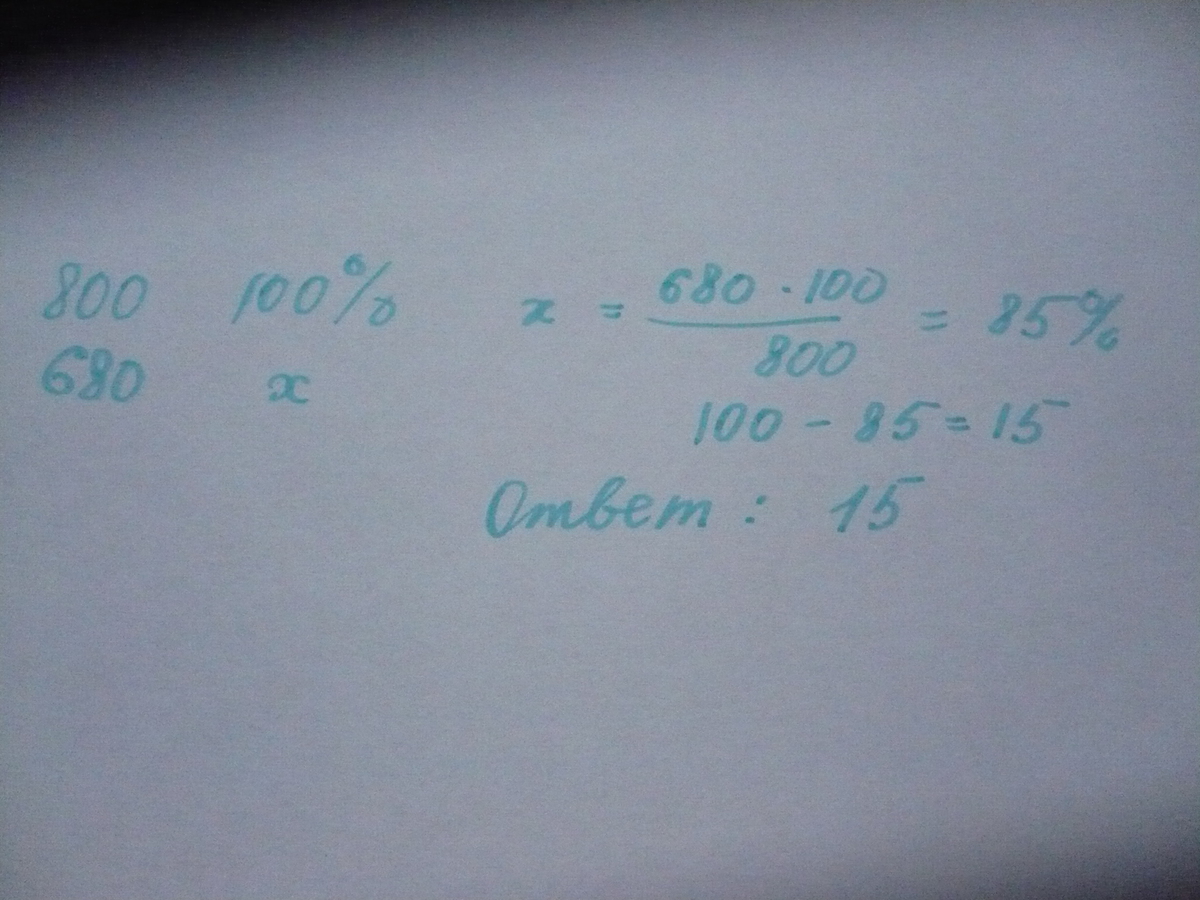 800 100% x = 680 · 100 / 800 = 85%
680 x
100 - 85 = 15
Ответ: 15